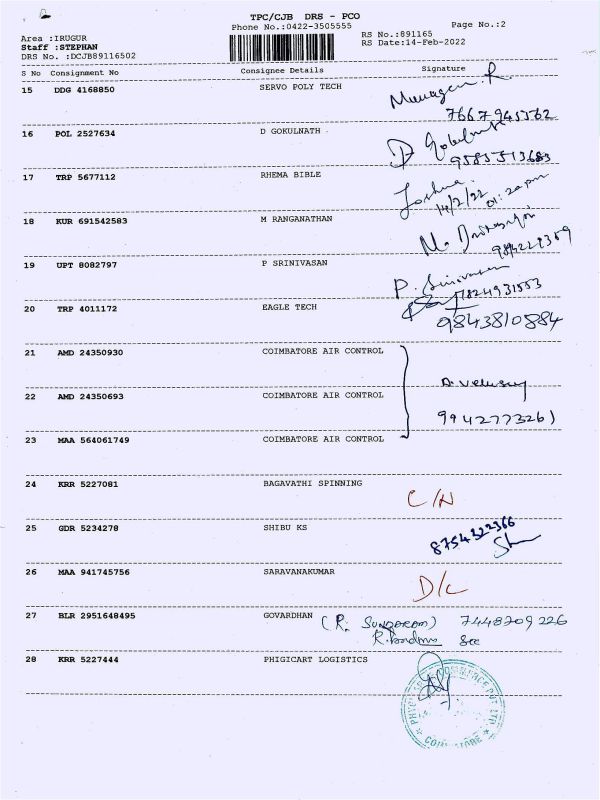 TPC/CJB DRS - PCO
Phone No.:0422-3505555
Page No.:2
Area :IRUGUR
RS No.:891165
Staff :STEPHAN
RS Date:14-Feb-2022
DRS No. :DCJB89116502
S No Consignment No Consignee Details Signature
15 DDG 4168850 SERVO POLY TECH
Manager. R.
7667945562
16 POL 2527634 D GOKULNATH
D Gokulnath
9585513683
17 TRP 5677112 RHEMA BIBLE
Joshua
14/2/22 01:20pm
18 KUR 691542583 M RANGANATHAN
M.
19 UPT 8082797 P SRINIVASAN
P. Srinivasan
7824931553
20 TRP 4011172 EAGLE TECH
9843810884
21 AMD 24350930 COIMBATORE AIR CONTROL
22 AMD 24350693 COIMBATORE AIR CONTROL
D. Velusamy
9942773261
23 MAA 564061749 COIMBATORE AIR CONTROL
24 KRR 5227081 BAGAVATHI SPINNING
C/N
25 GDR 5234278 SHIBU KS
8754322366
26 MAA 941745756 SARAVANAKUMAR
D/L
27 BLR 2951648495 GOVARDHAN (R. SUNDARAM) 7448709226
28 KRR 5227444 PHIGICART LOGISTICS
COMMERCE PVT LTD
COIMBATORE